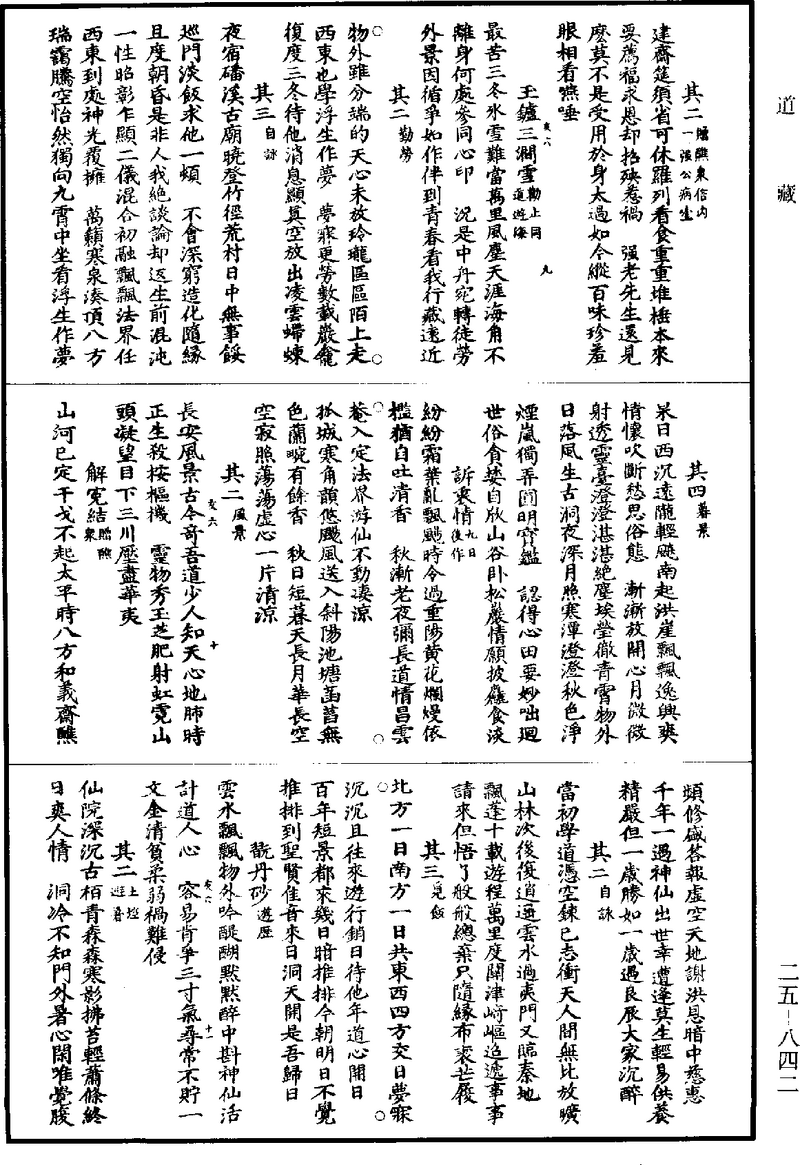 道藏
其二 贈醮衆信內一強公病生
建齋筵須省可休羅列看食重重堆㮈本來
要薦福求恩却招殃惹禍　强老先生還見
麽莫不是受用於身太過如今縱百味珍羞
眼相看嚥唾
玉鑪三澗雪 勸上同道遊緣
亥六　九
最苦三冬氷雪難當萬里風塵天涯海角不
離身何處參同心印　況是中丹宛轉徒勞
外景因循爭如作伴到青春看我行藏遠近
其二 勤勞
物外雖分端的天心未放玲瓏區區陌上走
西東也學浮生作夢　夢寐更勞數載巖龕
復度三冬待他消息顯真空放出凌雲螮蝀
其三 自詠
夜宿磻溪古廟曉登竹徑荒村日中無事餒
巡門淡飯求他一頓　不會深窮造化隨緣
且度朝昏是非人我絕談論却返生前混沌
一性昭彰乍顯二儀混合初融飄飄法界任
西東到處神光覆擁　萬籟寒泉湊頂八方
瑞靄騰空怡然獨向九霄中坐看浮生作夢
其四 暮景
杲日西沉遠隴輕飈南起洪崖飄飄逸興爽
情懷吹斷愁思俗態　漸漸放開心月微微
射透靈臺澄澄湛湛絕塵埃瑩徹青霄物外
日落風生古洞夜深月照寒潭澄澄秋色淨
煙嵐獨弄圓明寶鑑　認得心田要妙咄迴
世俗貪婪自欣山谷卧松巖情願披蘿食淡
訴衷情 九日後作
紛紛霜葉亂飄颺時令過重陽黄花爛熳依
檻猶自吐清香　秋漸老夜彌長道情昌雲
菴入定法界游仙不動凄涼
孤城寒角韻悠颺風送入斜陽池塘菡萏無
色蘭畹有餘香　秋日短暮天長月華長空
空寂照蕩蕩虚心一片清涼
其二 風景
亥六　十
長安風景古今奇吾道少人知天心地肺時
正生殺按樞機　靈物秀玉芝肥射虹霓山
頭凝望目下三川壓盡華夷
解寃結 贈醮衆
山河已定干戈不起太平時八方和義齋醮
頻修盛荅報虚空天地謝洪恩暗中慈惠
千年一遇神仙出世幸遭逢莫生輕易供養
精嚴但一歲勝如一歲遇良辰大家沉醉
其二 自詠
當初學道憑空鍊已志衝天人間無比放曠
山林次後復逍遥雲水過夷門又臨秦地
飄蓬十載遊程萬里度關津崎嶇迢遞事事
請來但悟了般般總棄只隨緣布裘芒屐
其三 覓飯
北方一日南方一日共東西四方交日夢寐
沉沉且往來遊行銷日待他年道心開日
百年短景都來幾日暗推排今朝明日不覺
推排到聖賢佳音來日洞天開是吾歸日
翫丹砂 遊歷
雲水飄飄物外吟醍醐黙黙醉中斟神仙活
亥六　十一
計道人心　容易肯爭三寸氣尋常不貯一
文金清貧柔弱禍難侵
其二 上莹避暑
仙院深沉古栢青森森寒影拂苔輕蕭條終
日爽人情　洞冷不知門外暑心閑唯覺腹
二五-八四二